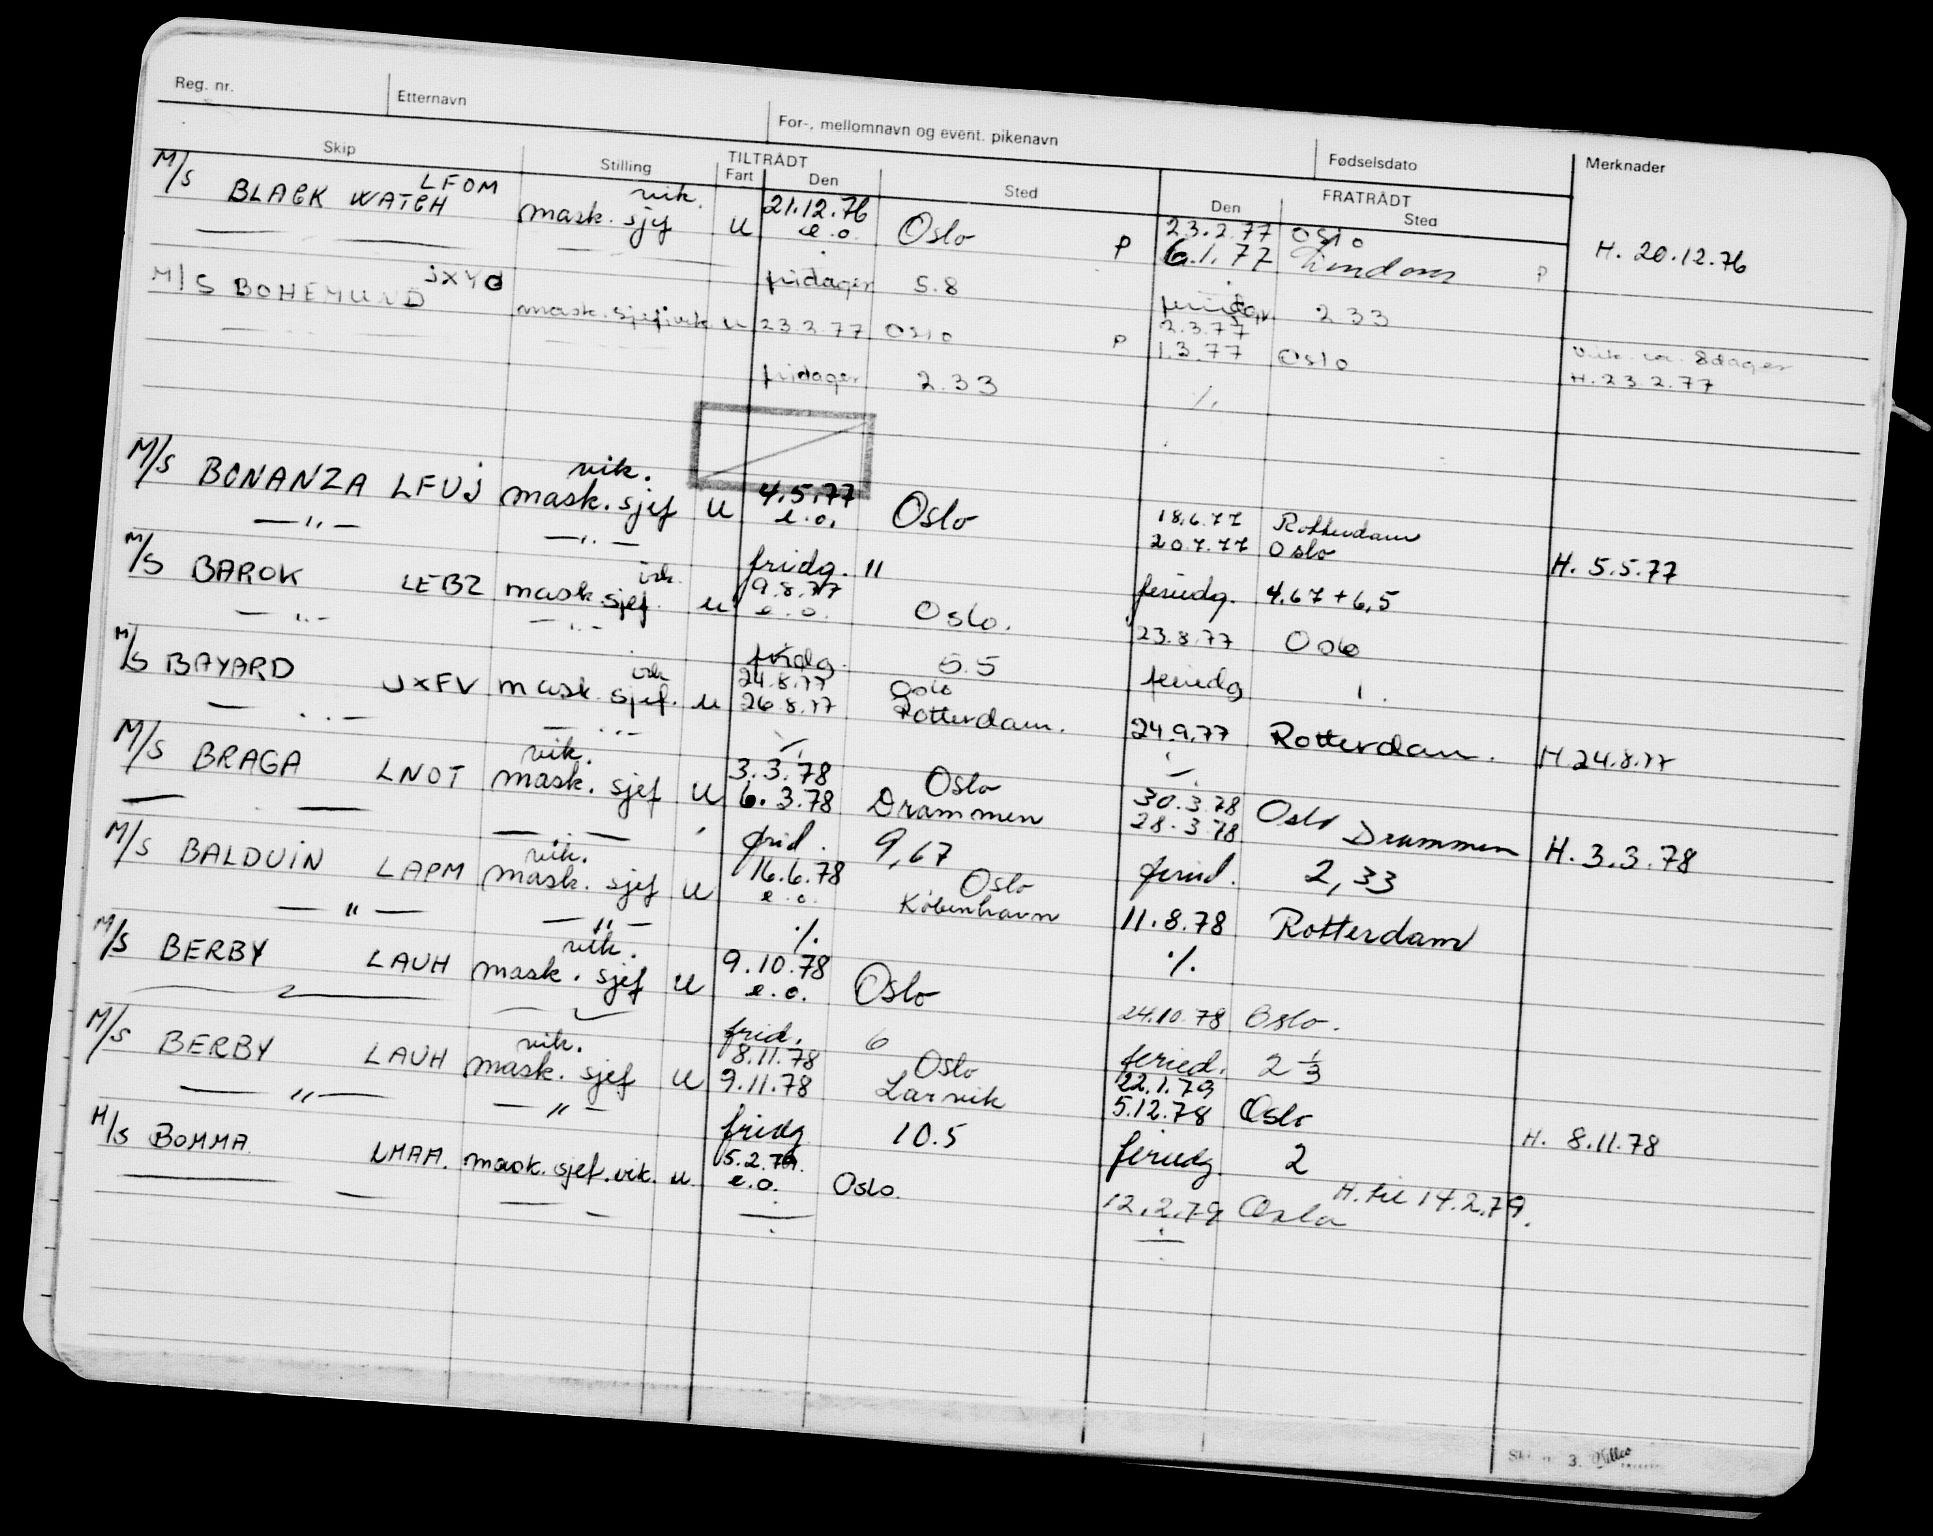 Reg. nr. Etternavn For-, mellomnavn og event. pikenavn Fødselsdato Merknader
Skip Stilling TILTRÅDT FRATRÅDT
Fart Den Sted Den Sted
M/S BLACK WATCH LFOM vik. mask. sjef u 21.12.76 e.o. Oslo P 23.2.77 Oslo
6.1.77 P H. 20.12.76
fridager 5.8 feriedager 2 33
M/S BOHEMUND JXYO mask. sjef vik u 23.2.77 Oslo 2.3.77
P 1.3.77 Oslo 8 dager
fridager 2.33 H. 23.2.77
M/S BONANZA LFUJ vik. mask. sjef u 4.5.77 e.o. Oslo 18.6.77 Rotterdam
— " — — " — 20.7.77 Oslo H. 5.5.77
fridg. 11 feriedg. 4,67 + 6,5
M/S BAROK LEBZ vik. mask. sjef. u 9.8.77 e.o. Oslo. 23.8.77 Oslo
— " — — " — fridg. 5.5 feriedg 1.
M/S BAYARD JXFV vik mask. sjef. u 24.8.77 Oslo
26.8.77 Rotterdam. 24.9.77 Rotterdam. H 24.8.77
— " — — " —
M/S BRAGA LNOT vik. mask. sjef u 3.3.78 Oslo 30.3.78 Oslo
6.3.78 Drammen 28.3.78 Drammen H. 3.3.78
frid. 9,67 feried. 2,33
M/S BALDUIN LAPM vik. mask. sjef u 16.6.78 Oslo
e.o. København 11.8.78 Rotterdam
— " — — " — ./. ./.
M/S BERBY LAUH vik. mask. sjef u 9.10.78 e.o. Oslo 24.10.78 Oslo.
frid. 6 feried. 2 1/3
M/S BERBY LAUH vik. mask. sjef u 8.11.78 Oslo 22.1.79
9.11.78 Larvik 5.12.78 Oslo H. 8.11.78
— " — — " — fridg 10.5 feriedg. 2
M/S BOMMA LMAM. mask. sjef. vik. u 5.2.79. e.o. Oslo. H. til 14.2.79.
12.2.79 Oslo
3.